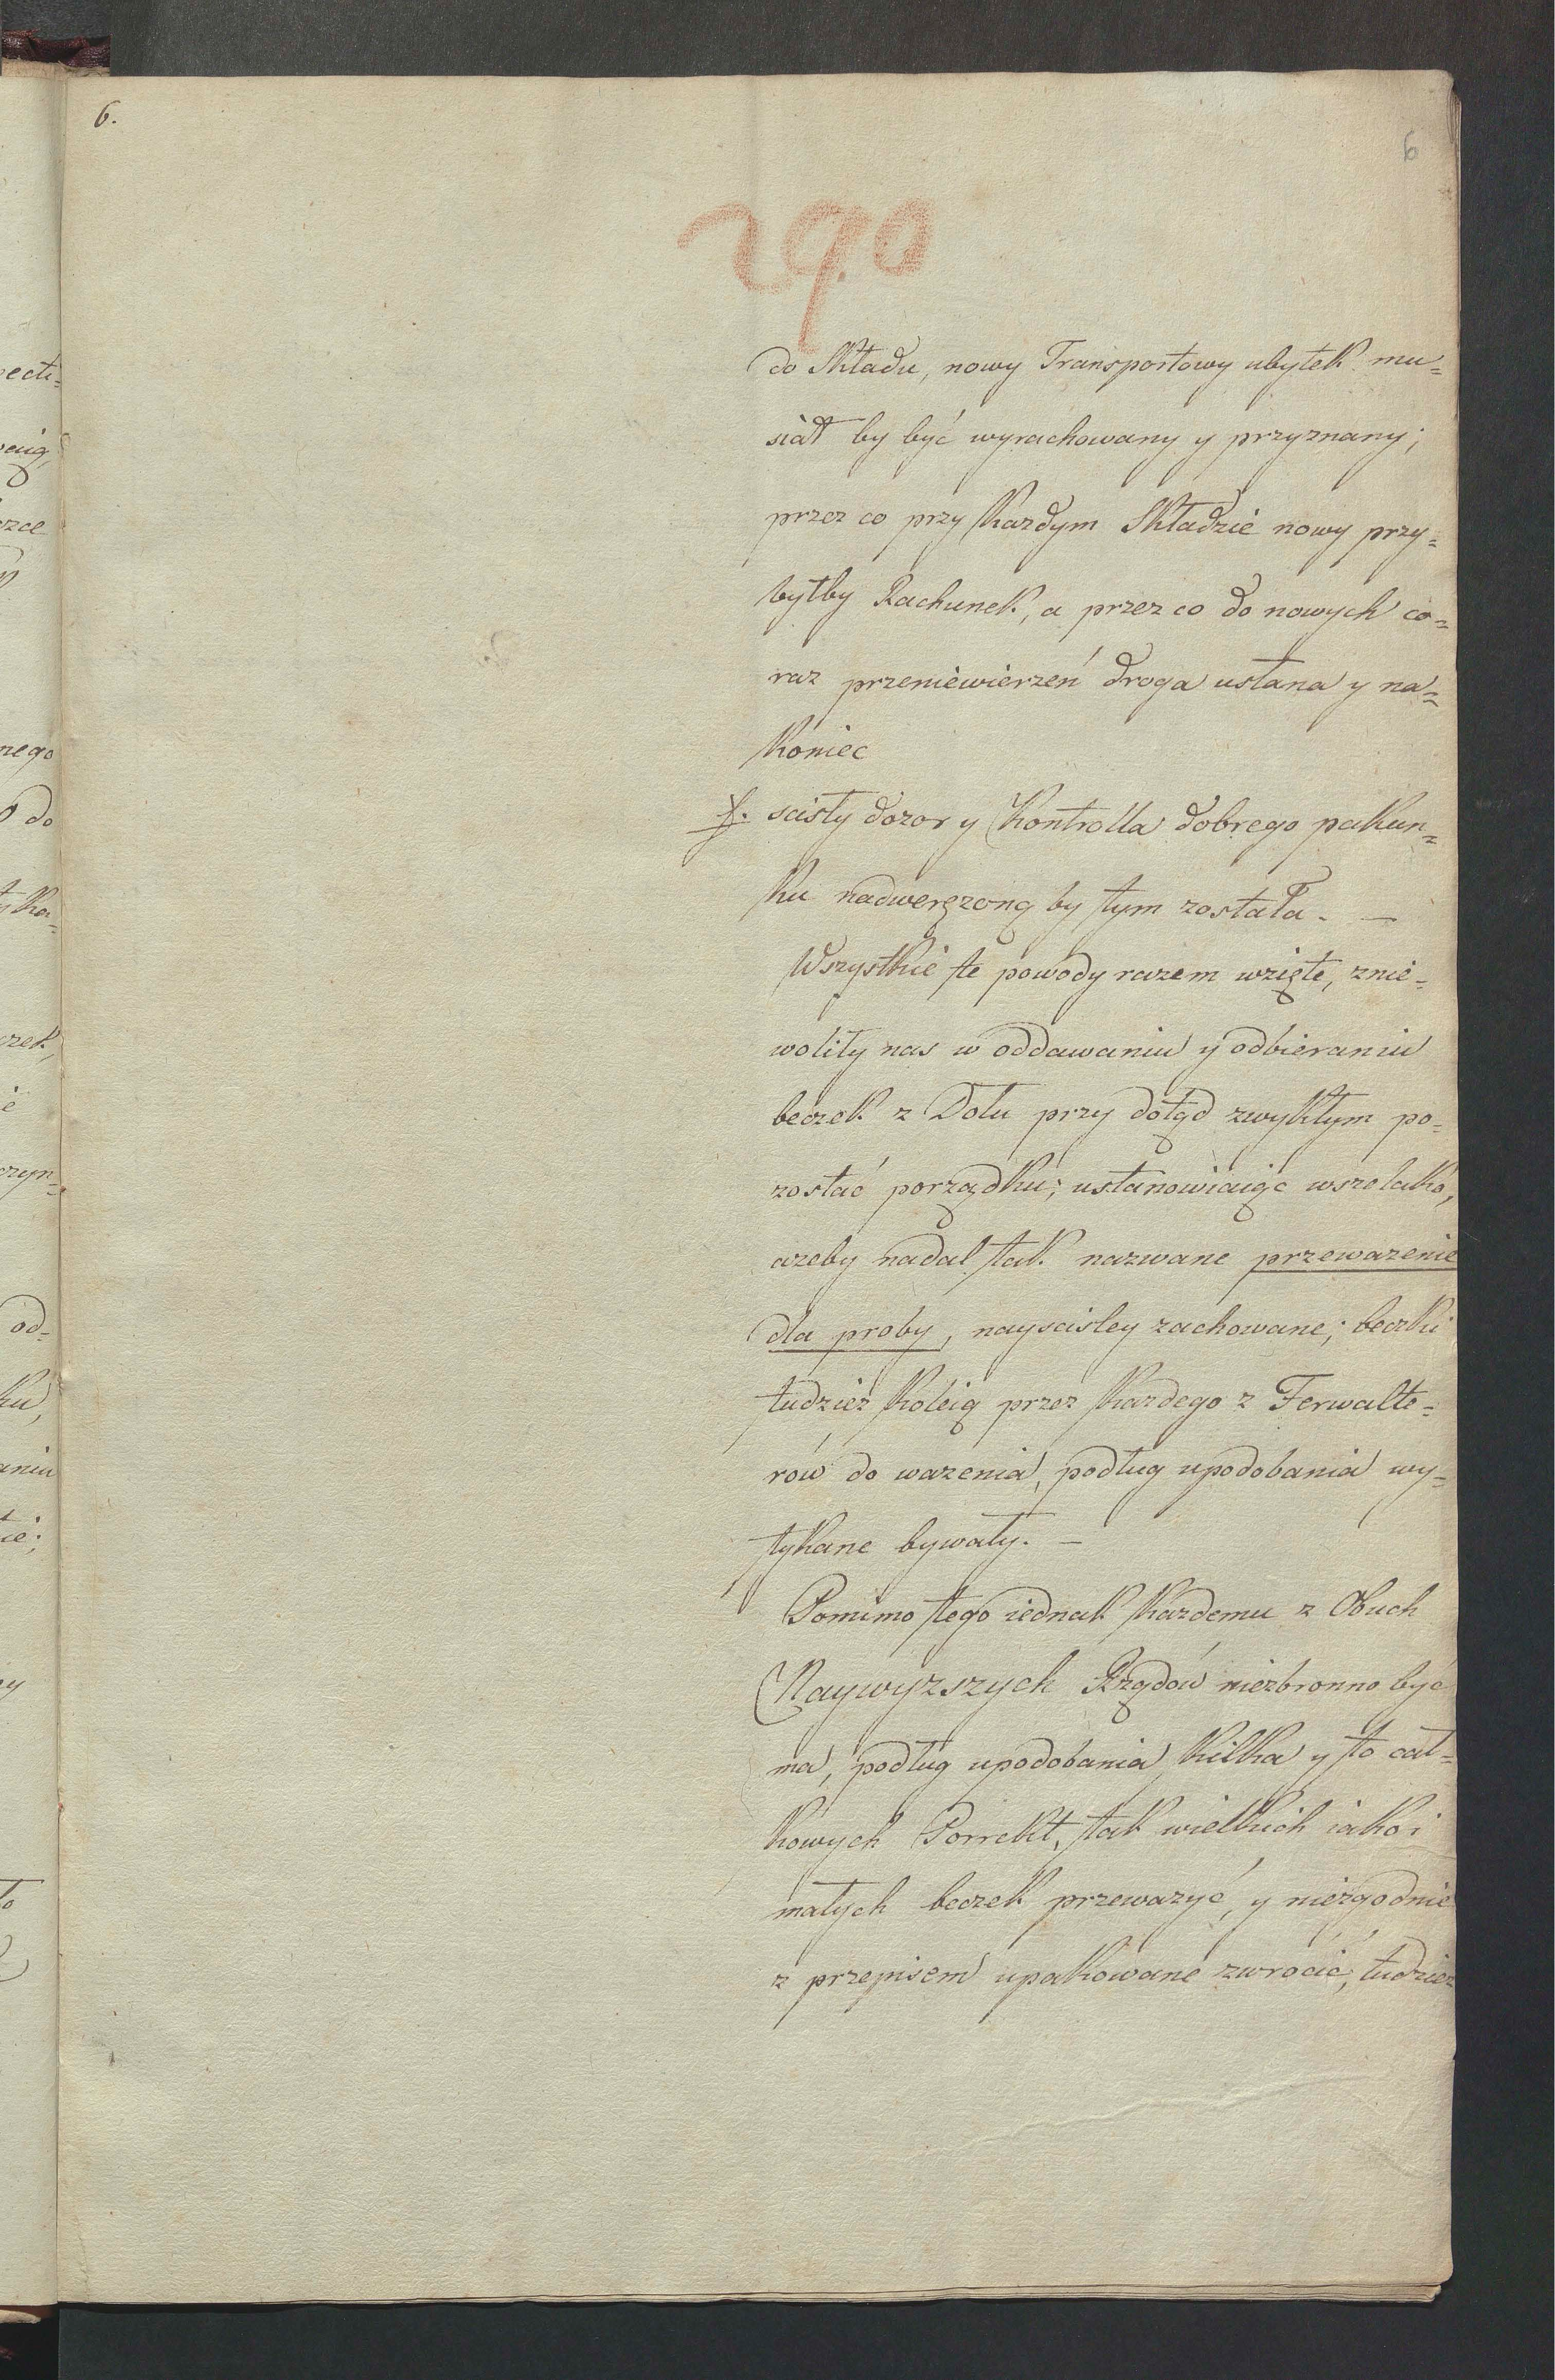 6.
6
290
do Składu, nowy Transportowy ubytek mu=
siał by być wyrachowany y przyznany;
przez co przy Kazdym Składzie nowy przy=
byłby Rachunek, a przez co do nowych co=
raz przeniewierzeń droga usłana y na=
koniec
f. scisły dozor y Kontrolla dobrego pakun=
ku nadwerężoną by tym została. —
Wszystkie te powody razem wzięte, znie=
woliły nas w oddawaniu y odbieraniu
beczek z Dołu przy dotąd zwykłym po=
zostać porządku; ustanowiaiąc wszelako,
azeby nadal tak nazwane przewazenie
dla proby, nayscisley zachowane; beczki
tudziez koleią przez Kazdego z Ferwalte=
rów do wazenia, podług upodobania wy=
tykane bywały. —
Pomimo tego iednak Kazdemu z Obuch
Naywyzszych Rządów niezbronno być
ma, podług upodobania, kilka y to cał=
kowych Porrekt, tak wielkich iako i
małych beczek przewazyć, y niezgodnie
z przepisem upakowane zwrócić, tudziez
ecti=
rzce
nego
do
tka=
czek,
czyn=
od=
ku,
aniu